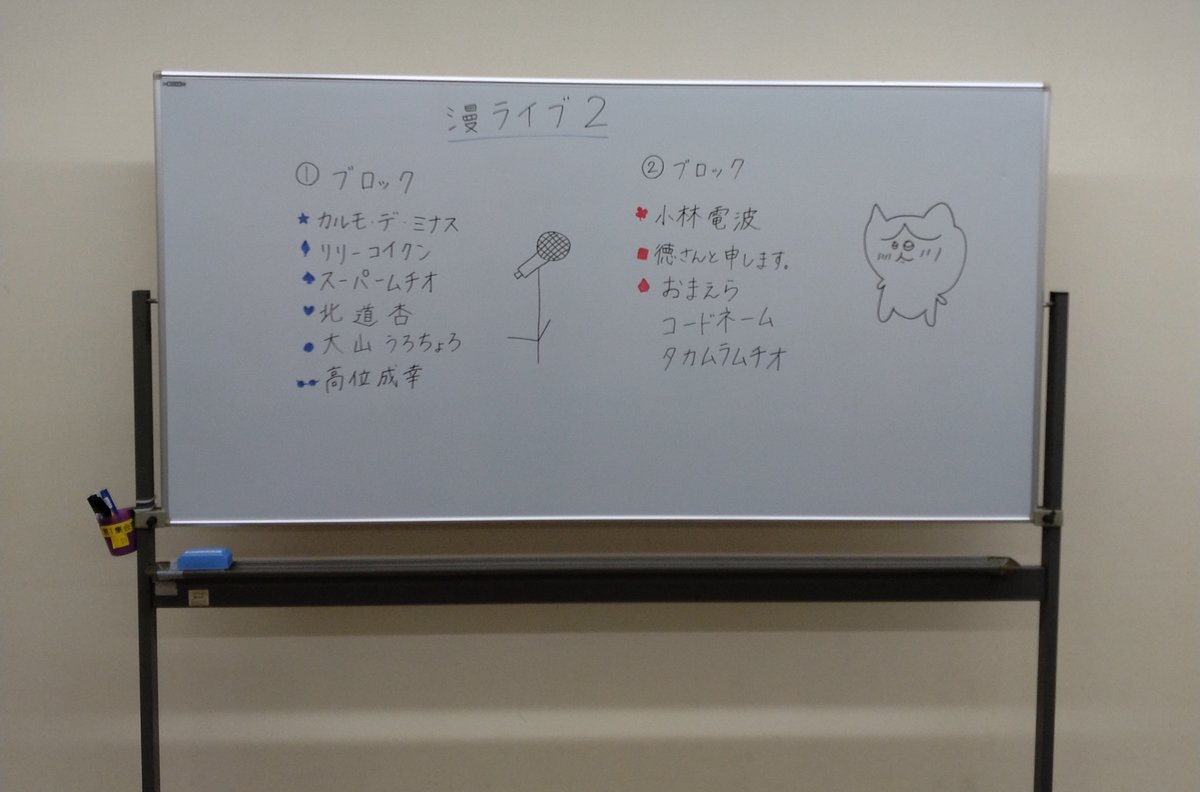 漫ライブ2
①ブロック
カルモ・デ・ミナス
リリーコイクン
スーパームチオ
北道杏
大山うろちょろ
高位成幸
②ブロック
小林電波
徳さんと申します。
おまえら
コードネーム
タカムラムチオ
集合